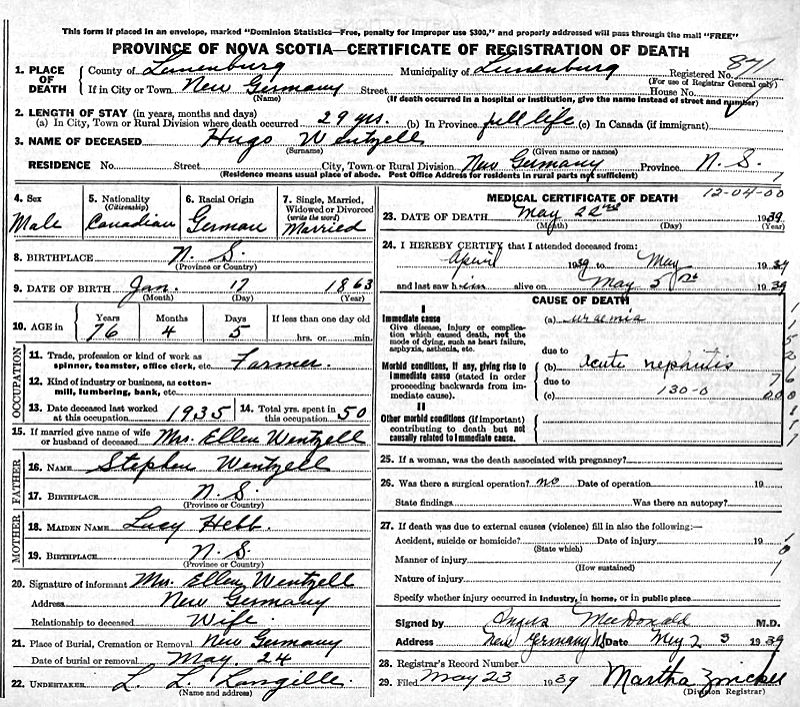 This form if placed in an envelope, marked "Dominion Statistics—Free, penalty for improper use $300," and properly addressed will pass through the mail "FREE"
PROVINCE OF NOVA SCOTIA—CERTIFICATE OF REGISTRATION OF DEATH
1. PLACE OF DEATH County of Lunenburg Municipality of Lunenburg Registered No. 871
(For use of Registrar General only)
If in City or Town New Germany Street House No.
(Name) (If death occurred in a hospital or institution, give the name instead of street and number)
2. LENGTH OF STAY (in years, months and days)
(a) In City, Town or Rural Division where death occurred 29 yrs. (b) In Province full life (c) In Canada (if immigrant)
3. NAME OF DECEASED Hugo Wentzell
(Surname) (Given name or names)
RESIDENCE No. Street City, Town or Rural Division New Germany Province N. S.
(Residence means usual place of abode. Post Office Address for residents in rural parts not sufficient) 7
4. Sex Male
5. Nationality (Citizenship) Canadian
6. Racial Origin German
7. Single, Married, Widowed or Divorced (write the word) Married
8. BIRTHPLACE N. S.
(Province or Country)
9. DATE OF BIRTH Jan. 17 1863
(Month) (Day) (Year)
10. AGE in Years 76 Months 4 Days 5 If less than one day old hrs. or min.
OCCUPATION
11. Trade, profession or kind of work as spinner, teamster, office clerk, etc. Farmer.
12. Kind of industry or business, as cotton-mill, lumbering, bank, etc.
13. Date deceased last worked at this occupation 1935
14. Total yrs. spent in this occupation 50
15. If married give name of wife or husband of deceased Mrs. Ellen Wentzell
FATHER
16. NAME Stephen Wentzell
17. BIRTHPLACE N. S.
(Province or Country)
MOTHER
18. MAIDEN NAME Lucy Hebb.
19. BIRTHPLACE N. S.
(Province or Country)
20. Signature of informant Mrs. Ellen Wentzell
Address New Germany
Relationship to deceased Wife.
21. Place of Burial, Cremation or Removal New Germany
Date of burial or removal May. 24
22. UNDERTAKER L. L. Langille.
(Name and address)
12-04-00
MEDICAL CERTIFICATE OF DEATH
23. DATE OF DEATH May 22nd 1939
(Month) (Day) (Year)
24. I HEREBY CERTIFY that I attended deceased from:
April 1939 to May 1939
and last saw him alive on May 5th 1939
CAUSE OF DEATH
I
Immediate cause
Give disease, injury or complication which caused death, not the mode of dying, such as heart failure, asphyxia, asthenia, etc.
(a) uraemia
due to
Morbid conditions, if any, giving rise to immediate cause (stated in order proceeding backwards from immediate cause).
(b) acute nephritis
due to
(c) 130-0
II
Other morbid conditions (if important) contributing to death but not causally related to immediate cause.
25. If a woman, was the death associated with pregnancy?
26. Was there a surgical operation? no Date of operation 19
State findings Was there an autopsy?
27. If death was due to external causes (violence) fill in also the following:—
Accident, suicide or homicide? Date of injury 19
(State which)
Manner of injury
(How sustained)
Nature of injury
Specify whether injury occurred in industry, in home, or in public place
Signed by Angus MacDonald M.D.
Address New Germany NS Date May 23 1939
28. Registrar's Record Number
29. Filed May 23 1939 Martha Zwicker
(Division Registrar)